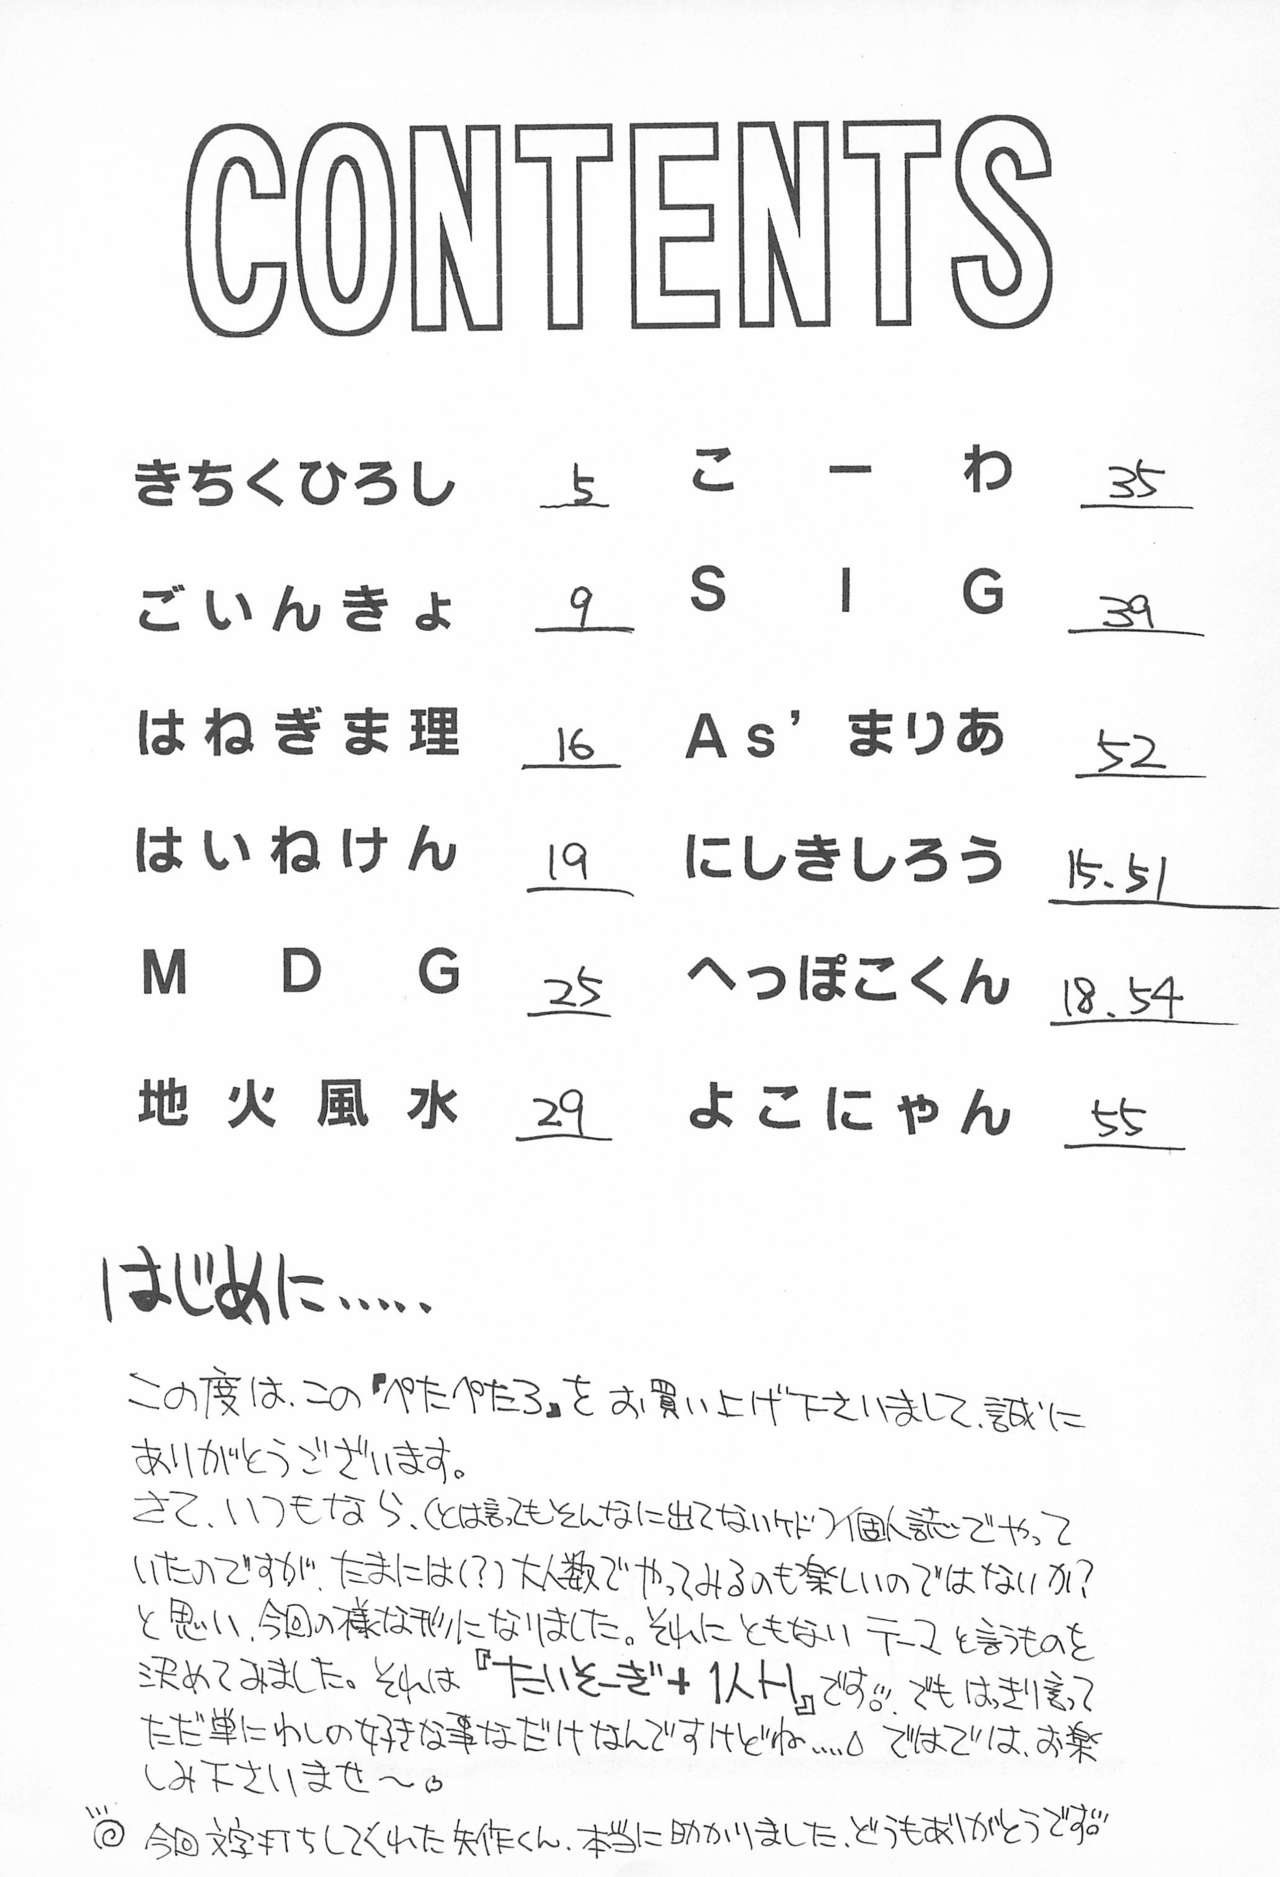 CONTENTS
きちくひろし 5
ごいんきょ 9
はねぎま理 16
はいねけん 19
MDG 25
地火風水 29
こーわ 35
SIG 39
As'まりあ 52
にしきしろう 15.51
へっぽこくん 18.54
よこにゃん 55
はじめに.....
この度は、この『ぺたぺたろ』をお買い上げ下さいまして、誠に
ありがとうございます。
さて、いつもなら、(とは言ってもそんなに出てないケド)個人誌でやって
いたのですが、たまには(?)大人数でやってみるのも楽しいのではないか?
と思い、今回の様な形になりました。それにともないテーマと言うものを
決めてみました。それは『たいそーぎ+1人H』です。でもはっきり言って
ただ単にわしの好きな事なだけなんですけどね.....。ではでは、お楽
しみ下さいませ〜。
今回文字打ちしてくれた矢作くん、本当に助かりました、どうもありがとうです。